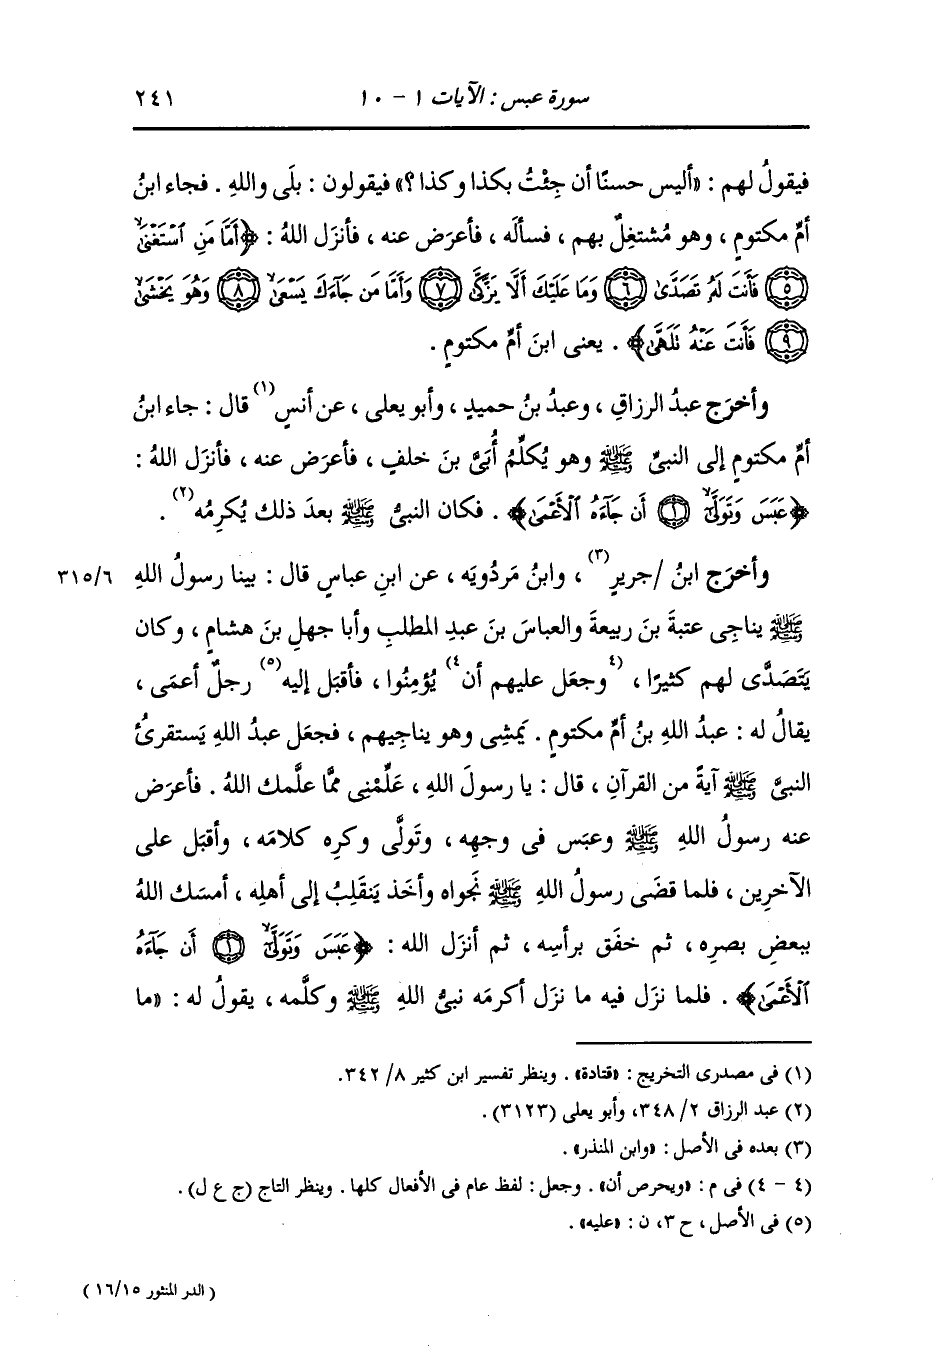 سورة عبس : الآيات ١ - ١٠ ٢٤١
فيقولُ لهم : «أليس حسنًا أن جِئْتُ بكذا وكذا ؟» فيقولون : بلَى واللهِ . فجاء ابنُ
أمِّ مكتومٍ ، وهو مُشتغِلٌ بهم ، فسألَه ، فأعرَض عنه ، فأنزَل اللهُ : ﴿أَمَّا مَنِ ٱسْتَغْنَىٰ
۝٥ فَأَنتَ لَهُۥ تَصَدَّىٰ ۝٦ وَمَا عَلَيْكَ أَلَّا يَزَّكَّىٰ ۝٧ وَأَمَّا مَن جَآءَكَ يَسْعَىٰ ۝٨ وَهُوَ يَخْشَىٰ
۝٩ فَأَنتَ عَنْهُ تَلَهَّىٰ﴾ . يعنى ابنَ أمِّ مكتومٍ .
وأخرَج عبدُ الرزاقِ ، وعبدُ بنُ حميدٍ ، وأبو يعلى ، عن أنسٍ(١) قال : جاء ابنُ
أمِّ مكتومٍ إلى النبىِّ ﷺ وهو يُكلِّمُ أُبَىَّ بنَ خلفٍ ، فأعرَض عنه ، فأنزَل اللهُ :
﴿عَبَسَ وَتَوَلَّىٰٓ ۝١ أَن جَآءَهُ ٱلْأَعْمَىٰ﴾ . فكان النبىُّ ﷺ بعدَ ذلك يُكرِمُه(٢) .
وأخرَج ابنُ /جريرٍ(٣) ، وابنُ مَردُويَه ، عن ابنِ عباسٍ قال : بينا رسولُ اللهِ ٣١٥/٦
ﷺ يناجِى عتبةَ بنَ ربيعةَ والعباسَ بنَ عبدِ المطلبِ وأبا جهلِ بنَ هشامٍ ، وكان
يَتَصَدَّى لهم كثيرًا ، (٤وجعَل عليهم أن٤) يُؤمِنُوا ، فأقبَل إليه(٥) رجلٌ أعمَى ،
يقالُ له : عبدُ اللهِ بنُ أمِّ مكتومٍ . يَمشِى وهو يناجيهم ، فجعَل عبدُ اللهِ يَستقرئُ
النبىَّ ﷺ آيةً من القرآنِ ، قال : يا رسولَ اللهِ ، عَلِّمْنِى ممَّا علَّمك اللهُ . فأعرَض
عنه رسولُ اللهِ ﷺ وعبَس فى وجهِه ، وتَولَّى وكرِه كلامَه ، وأقبَل على
الآخرِين ، فلما قضَى رسولُ اللهِ ﷺ نَجواه وأخَذ يَنقَلِبُ إلى أهلِه ، أمسَك اللهُ
ببعضِ بصرِه ، ثم خفَق برأسِه ، ثم أنزَل الله : ﴿عَبَسَ وَتَوَلَّىٰٓ ۝١ أَن جَآءَهُ
ٱلْأَعْمَىٰ﴾ . فلما نزَل فيه ما نزَل أكرمَه نبىُّ اللهِ ﷺ وكلَّمه ، يقولُ له : «ما
(١) فى مصدرى التخريج : «قتادة» . وينظر تفسير ابن كثير ٨/ ٣٤٢.
(٢) عبد الرزاق ٢/ ٣٤٨، وأبو يعلى (٣١٢٣) .
(٣) بعده فى الأصل : «وابن المنذر» .
(٤ - ٤) فى م : «ويحرص أن» . وجعل : لفظ عام فى الأفعال كلها . وينظر التاج (ج ع ل) .
(٥) فى الأصل ، ح ٣، ن : «عليه» .
( الدر المنثور ١٦/١٥ )